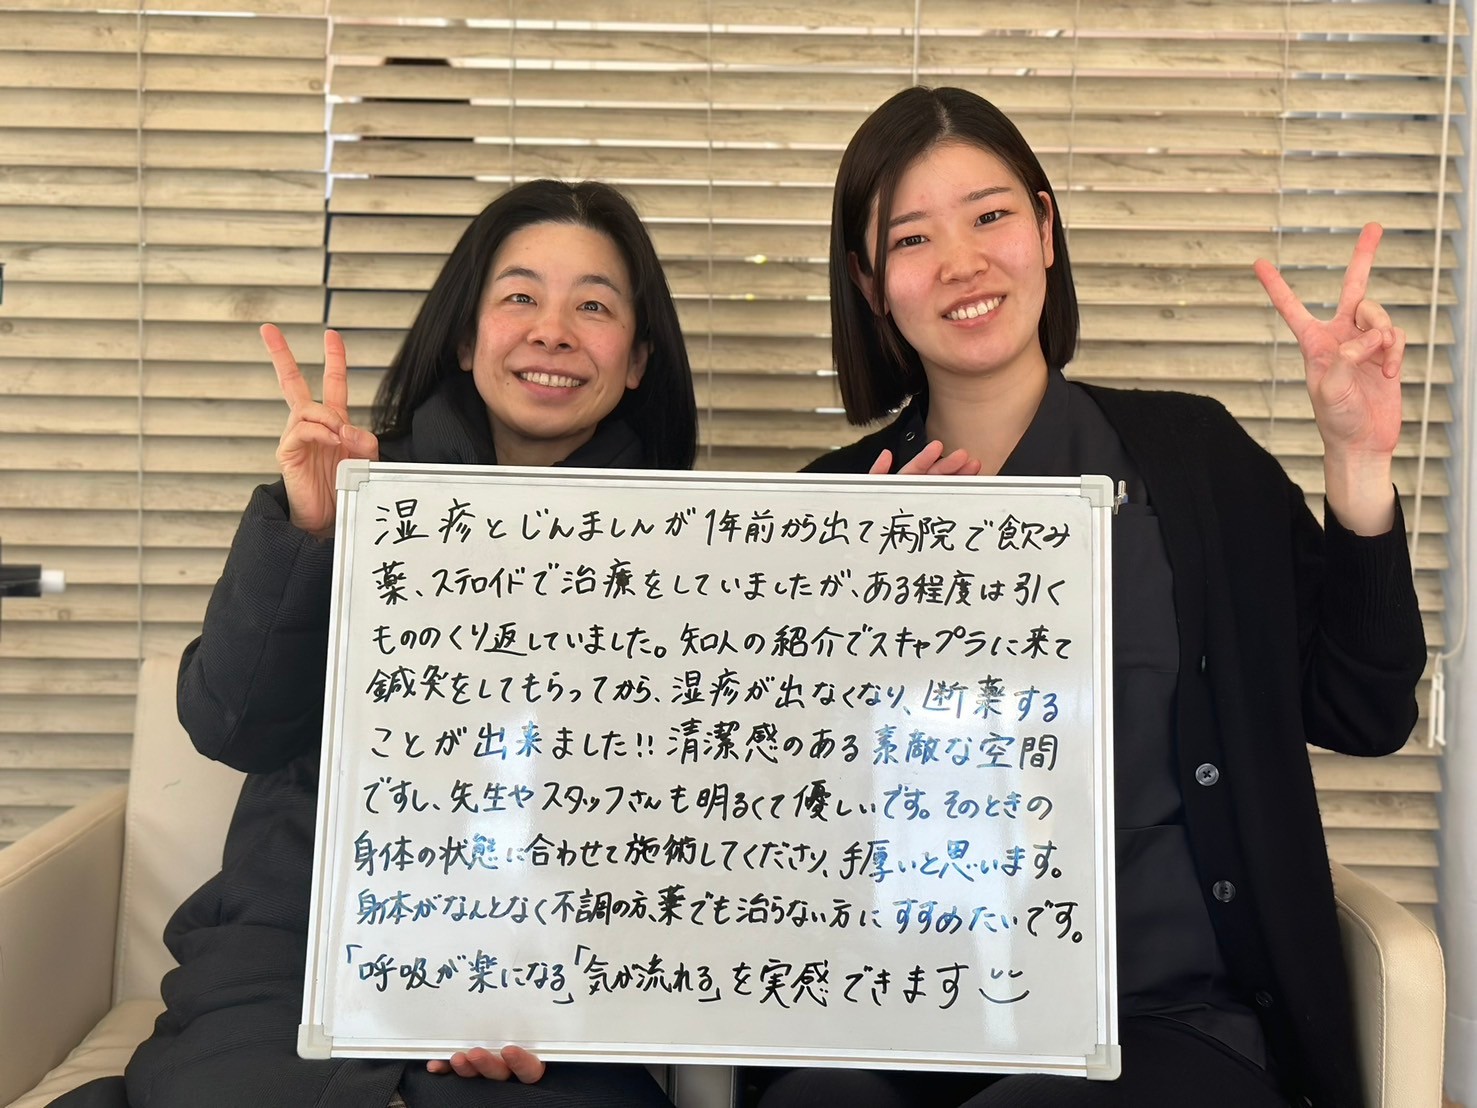 湿疹とじんましんが1年前から出て病院で飲み
薬、ステロイドで治療をしていましたが、ある程度は引く
もののくり返していました。知人の紹介でスキャプラに来て
鍼灸をしてもらってから、湿疹が出なくなり、断薬する
ことが出来ました!!清潔感のある素敵な空間
ですし、先生やスタッフさんも明るくて優しいです。そのときの
身体の状態に合わせて施術してくださり、手厚いと思います。
身体がなんとなく不調の方、薬でも治らない方にすすめたいです。
「呼吸が楽になる」「気が流れる」を実感できます